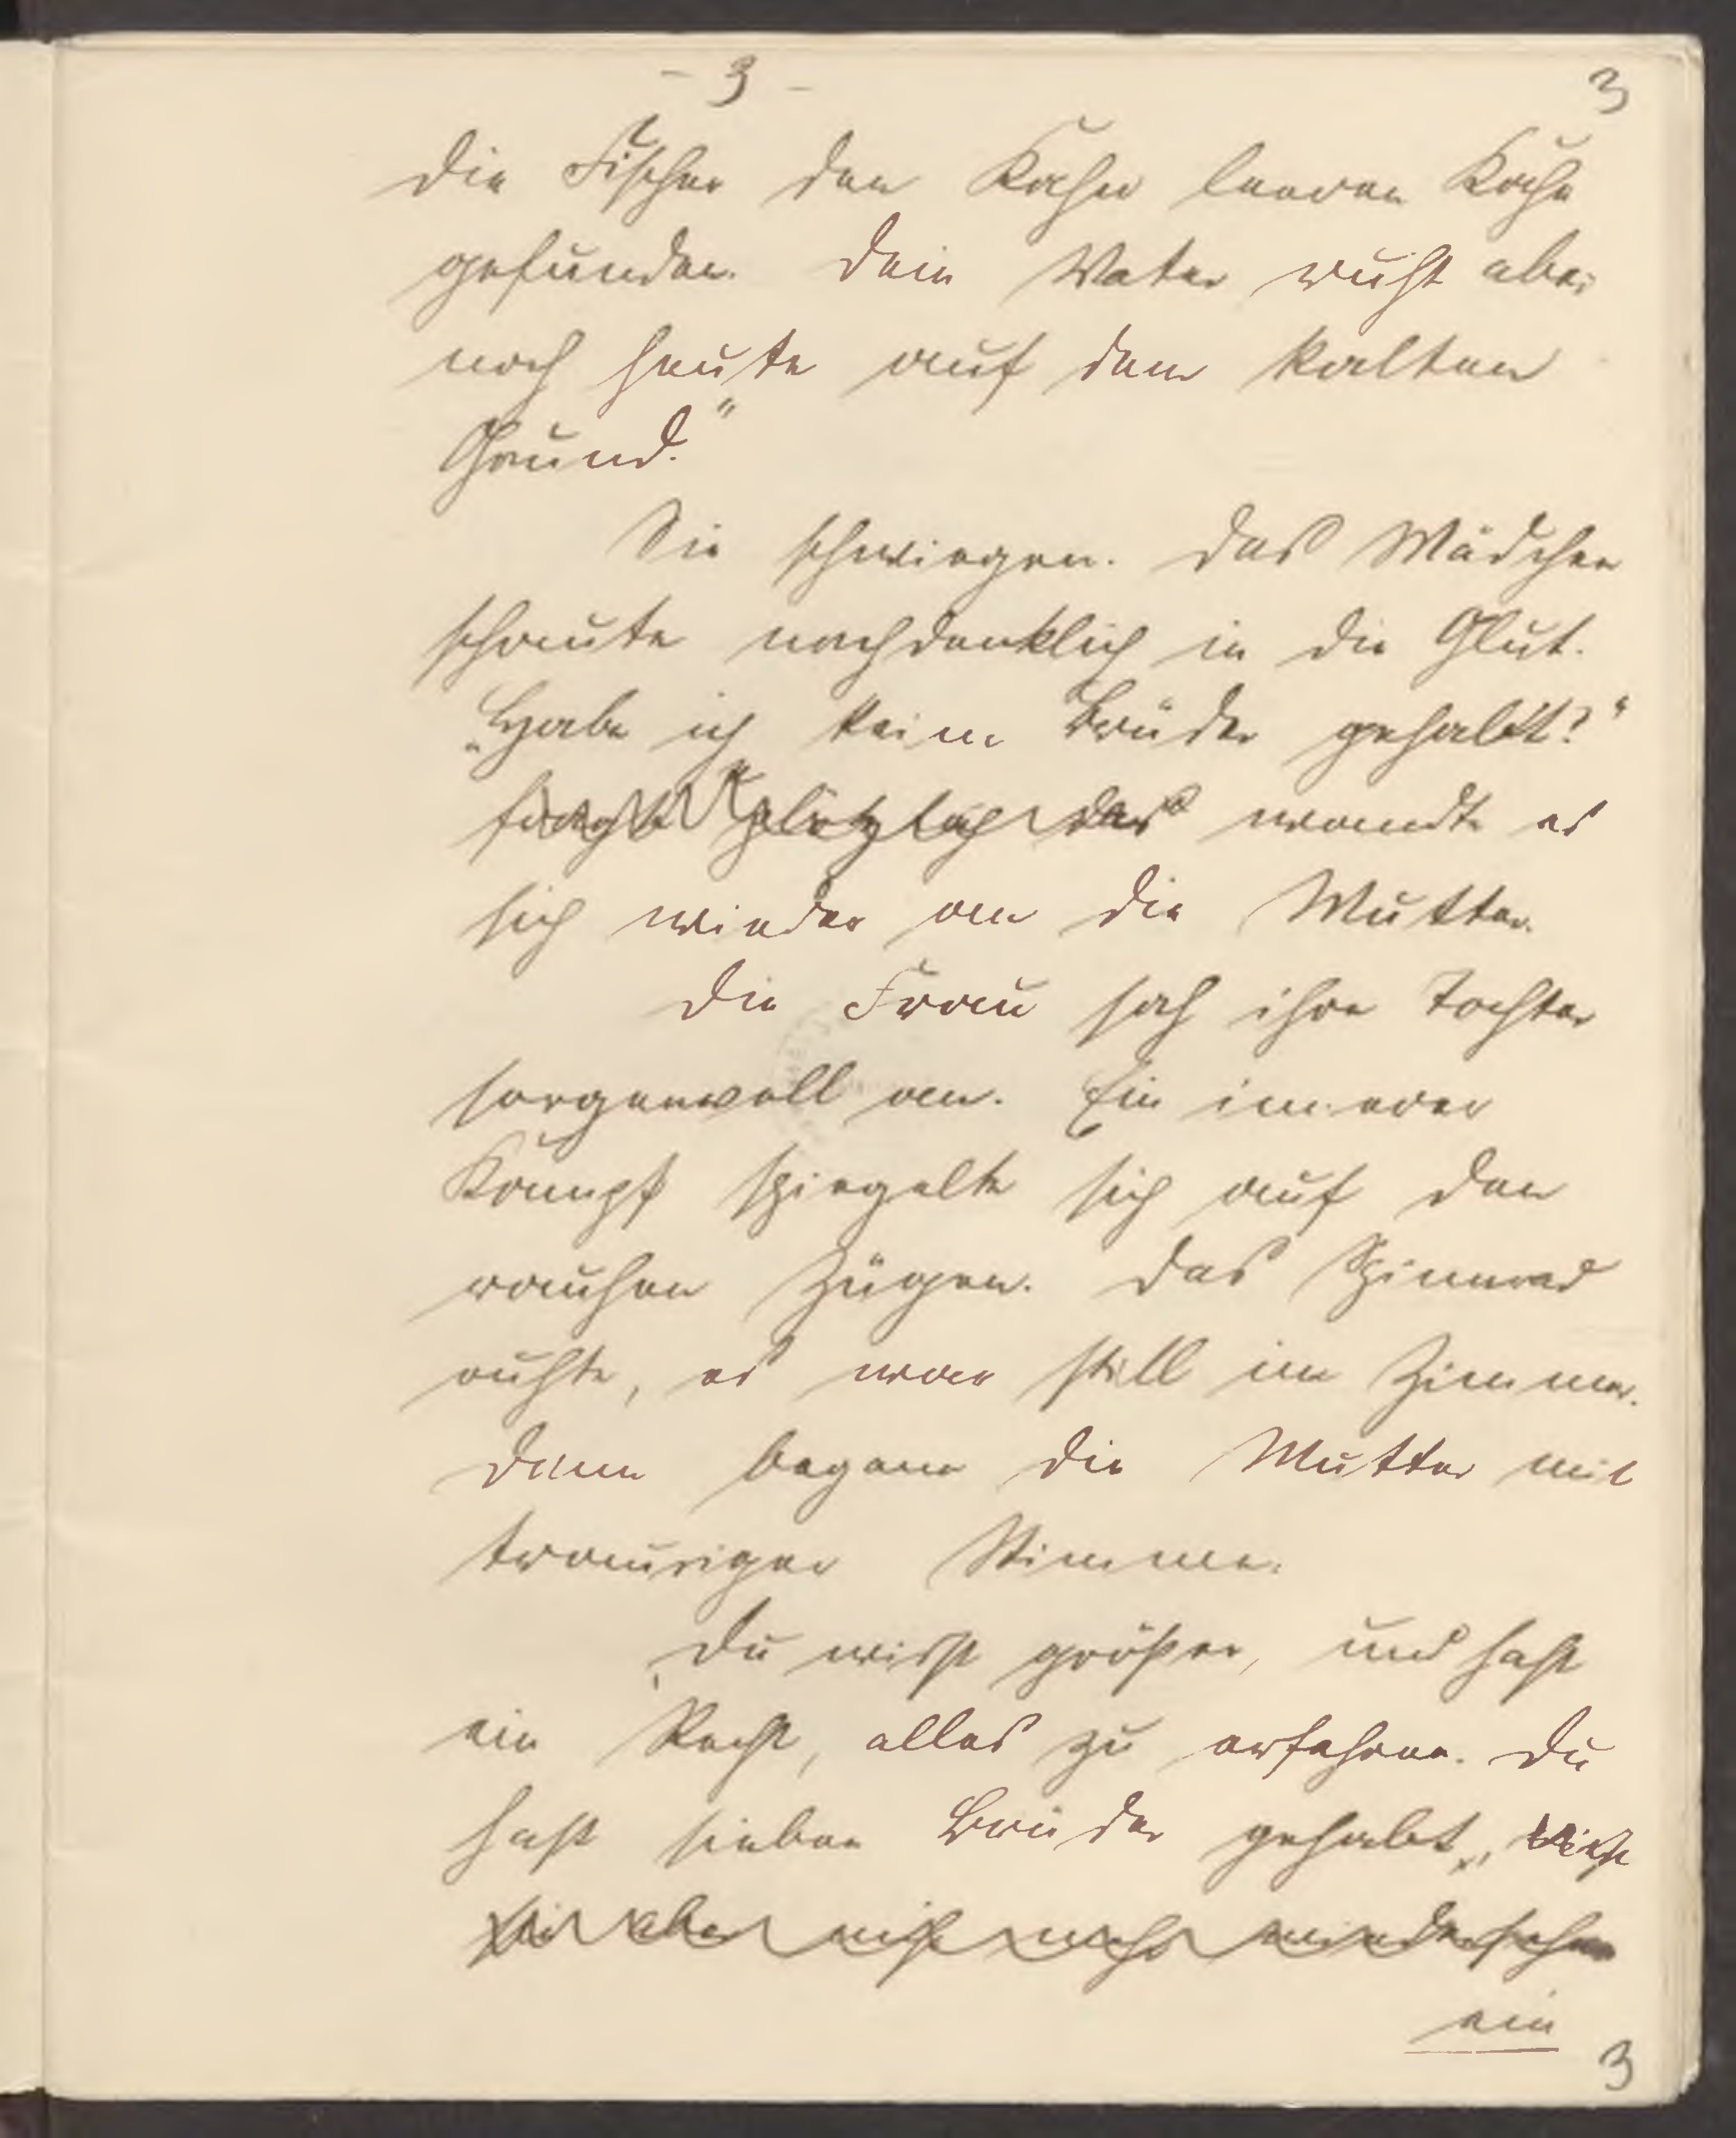 - 3 - 3
die Fischer den Kahn leeren Kahn
gefunden. Dein Vater ruht aber
noch heute auf dem kalten
Grund."
Sie schwiegen. Das Mädchen
schaute nachdenklich in die Glut.
„Habe ich keine Brüder gehabt?"
fragte plötzlich das wandte es
sich wieder an die Mutter.
Die Frau sah ihre Tochter
sorgenvoll an. Ein innerer
Kampf spiegelte sich auf den
rauhen Zügen. Das Spinnrad
ruhte, es war still im Zimmer.
Dann begann die Mutter mit
trauriger Stimme:
„Du wirst größer, und hast
ein Recht, alles zu erfahren. Du
hast sieben Brüder gehabt,
aber nicht mehr wiedersehen
ein
3